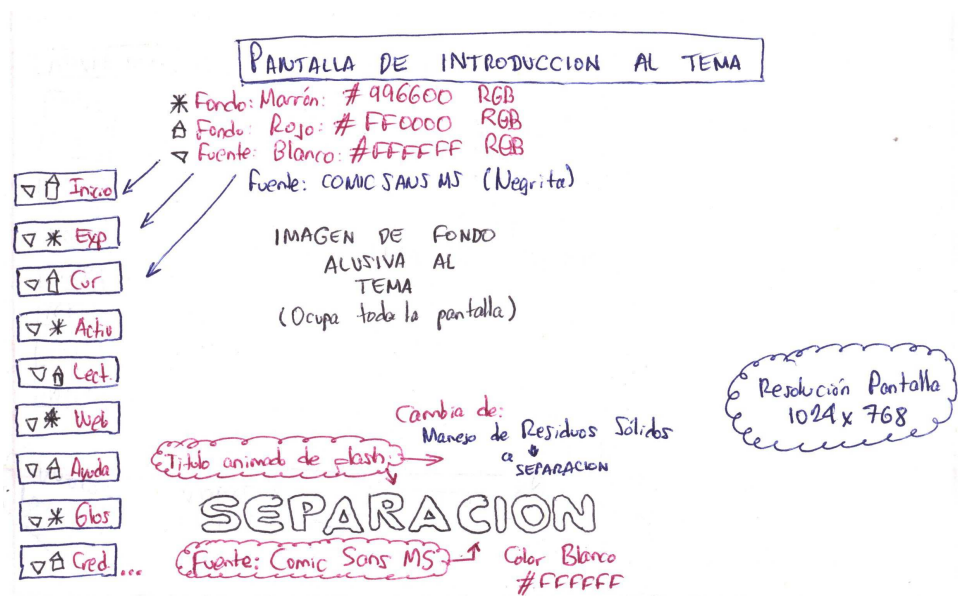 PANTALLA DE INTRODUCCION AL TEMA
* Fondo: Marrón: # 996600 RGB
Fondo: Rojo: # FF0000 RGB
Fuente: Blanco: #FFFFFF RGB
Fuente: COMIC SANS MS (Negrita)
Inicio
* Exp
Cur
* Activ
Lect.
* Web
Ayuda
* Glos
Cred...
IMAGEN DE FONDO
ALUSIVA AL
TEMA
(Ocupa toda la pantalla)
Resolución Pantalla
1024 x 768
Cambia de:
Manejo de Residuos Sólidos
a
SEPARACION
Titulo animado de flash:
SEPARACION
Fuente: Comic Sans MS
Color Blanco
#FFFFFF